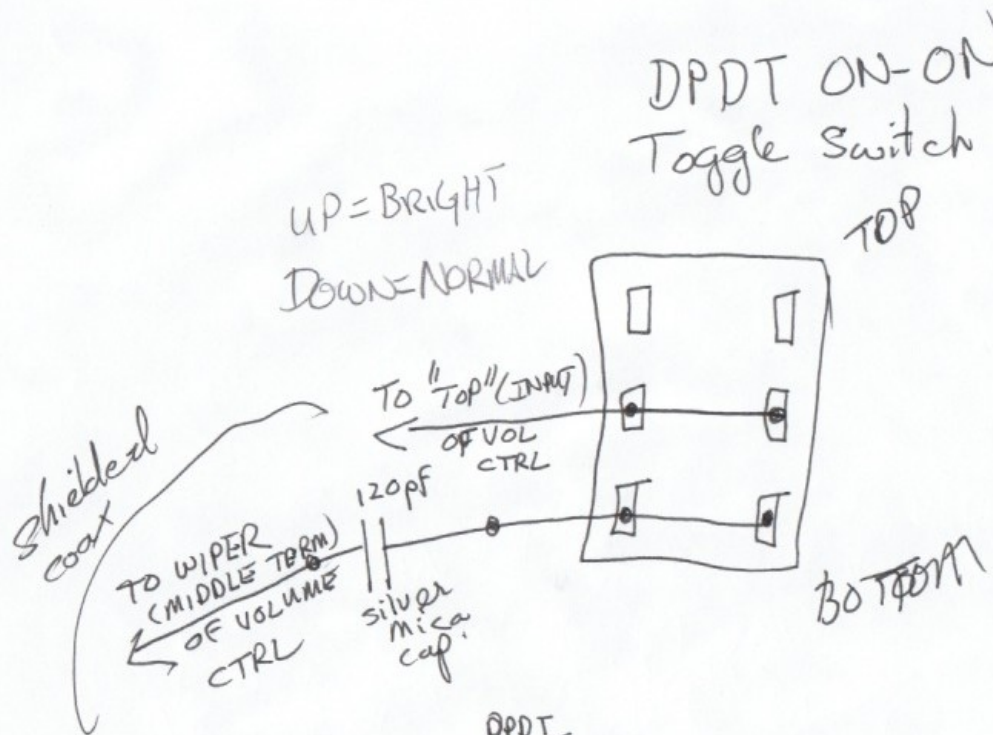 DPDT ON-ON
Toggle Switch
TOP
UP=BRIGHT
DOWN=NORMAL
TO "TOP" (INPUT)
OF VOL
CTRL
shielded
coax
120pf
TO WIPER
(MIDDLE TERM)
OF VOLUME
CTRL
silver
mica
cap.
BOTTOM
DPDT